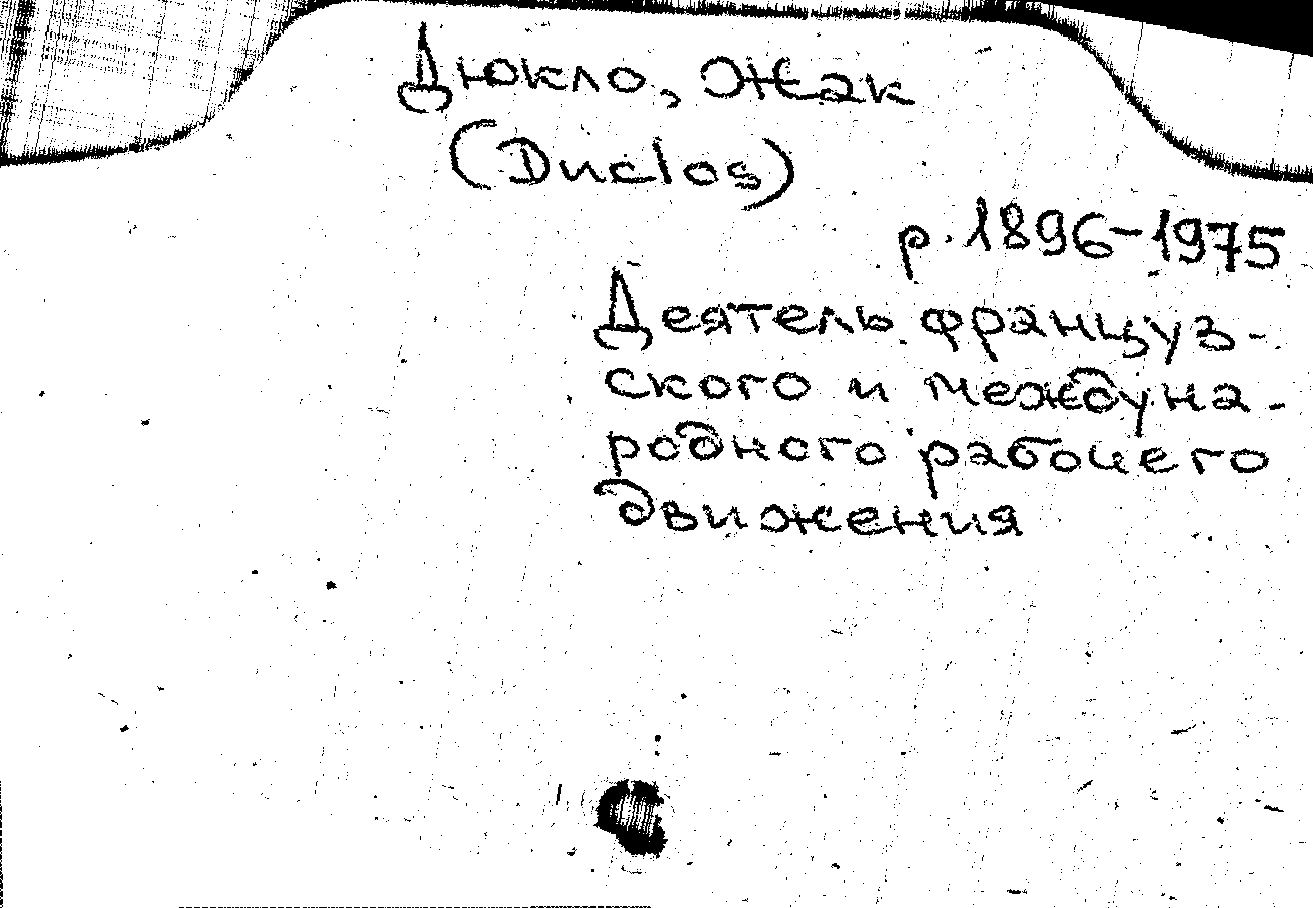 Дюкло, Жак
(Duclos)
р. 1896-1975
Деятель француз-
ского и междуна-
родного рабочего
движения